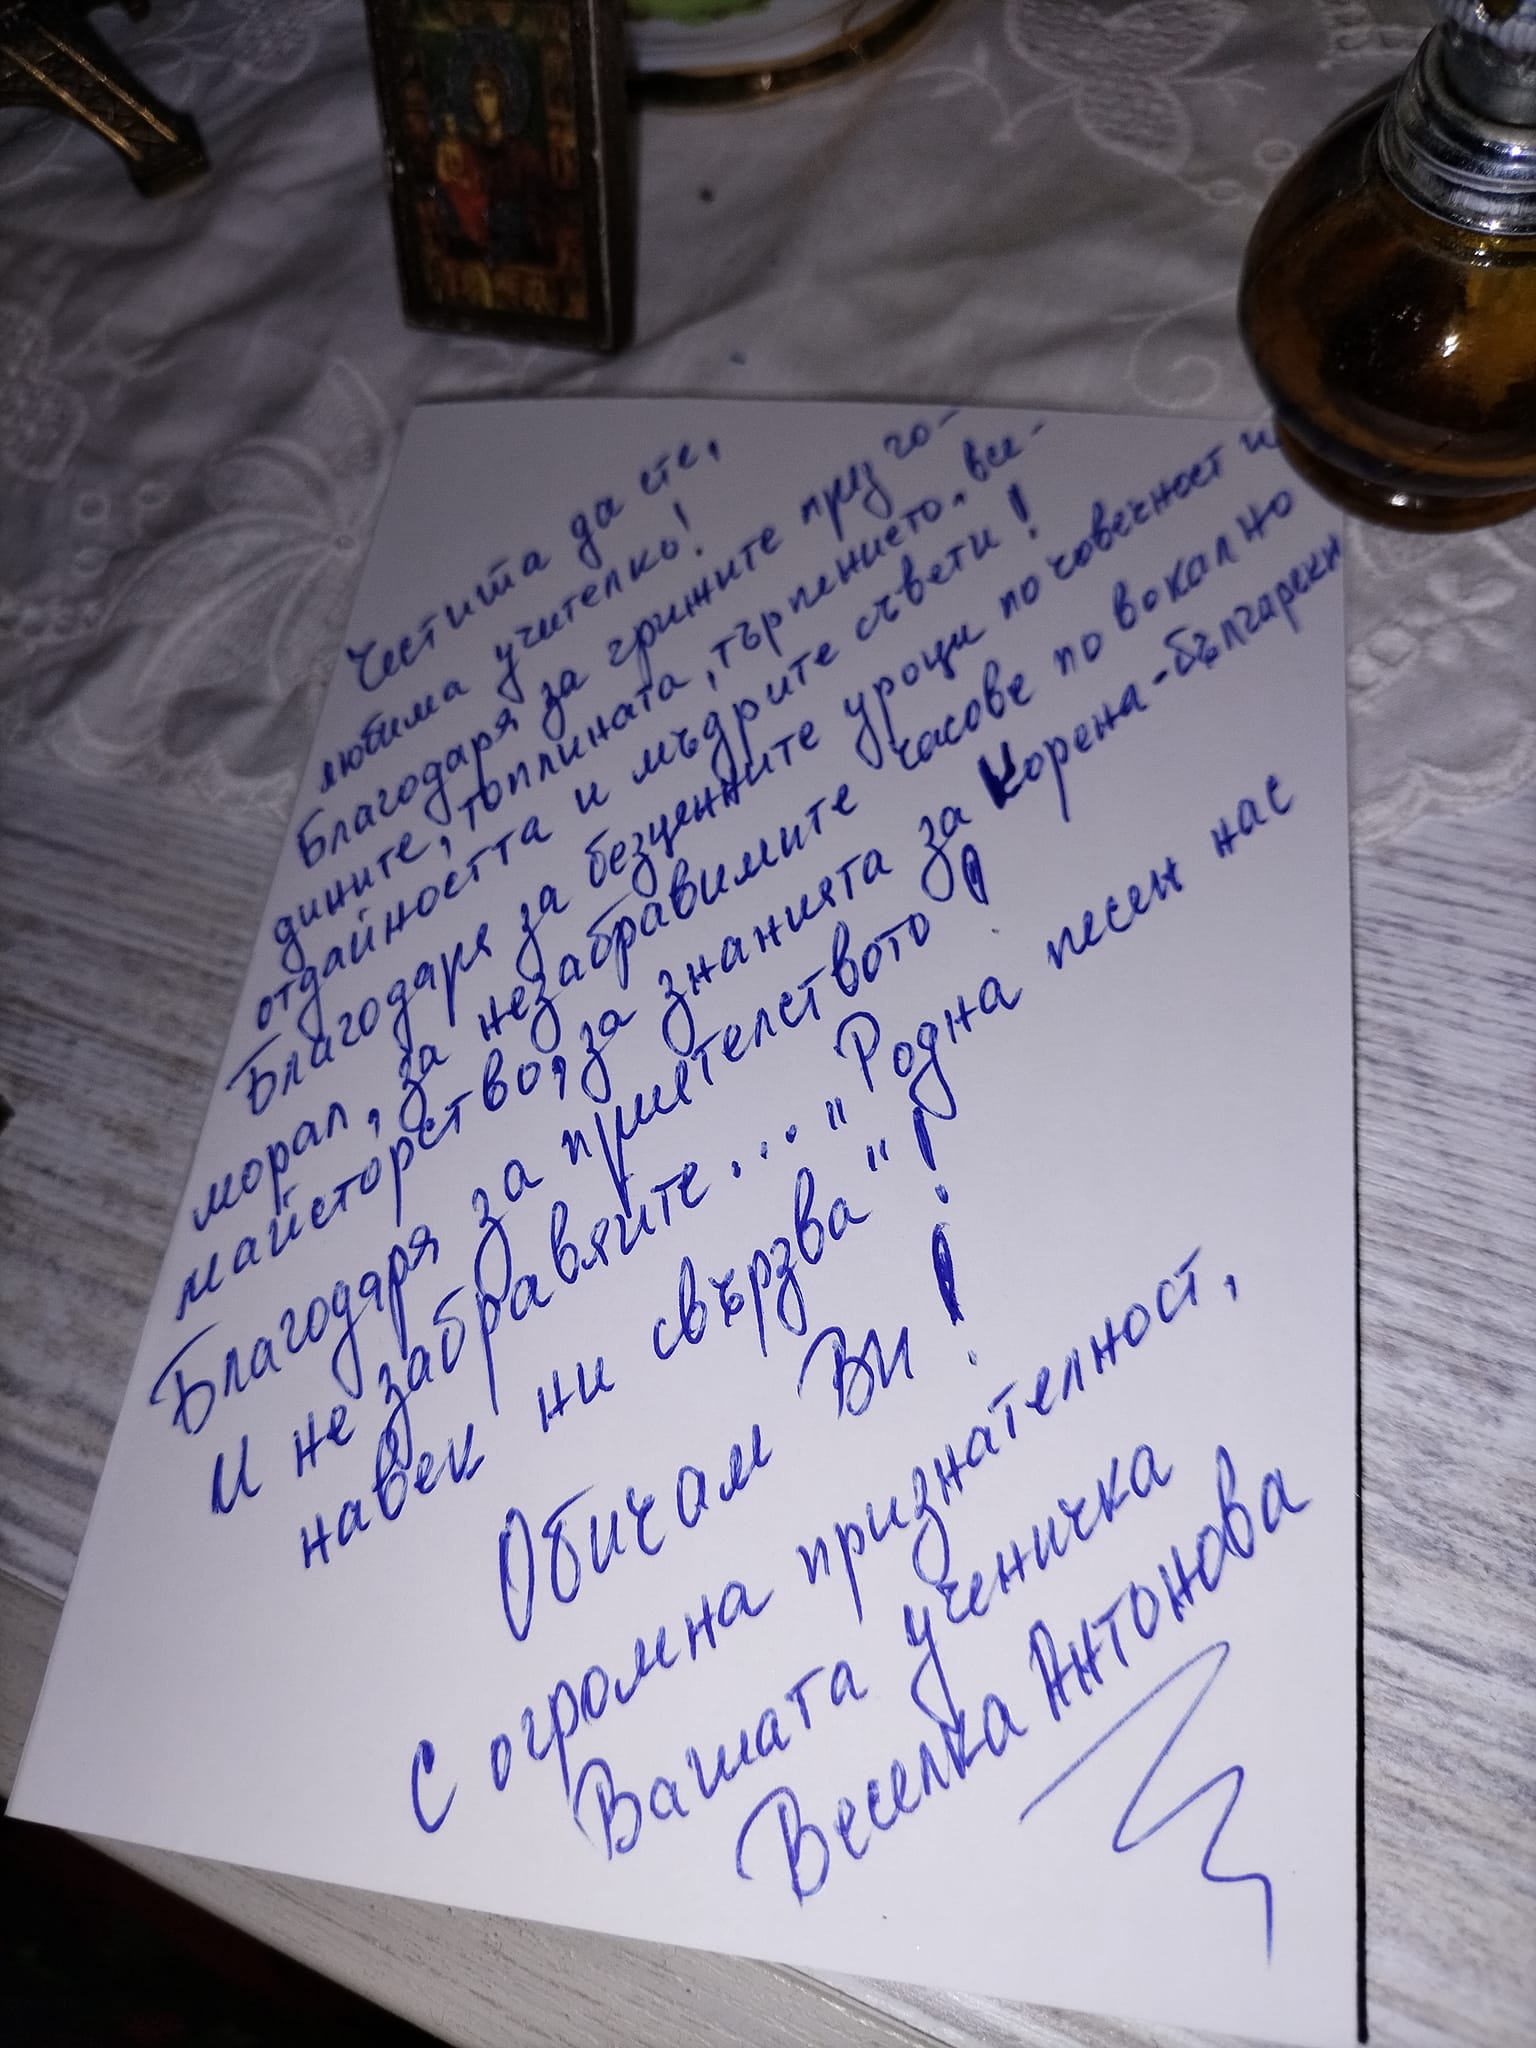 Честита да сте,
любима учителко!
Благодаря за грижите през го-
дините, топлината, търпението, все-
отдайността и мъдрите съвети!
Благодаря за безценните уроци по човечност и
морал, за незабравимите часове по вокално
майсторство, за знанията за корена-български
Благодаря за приятелството!
И не забравяйте... "Родна песен нас
навек ни свързва"!
Обичам Ви!
С огромна признателност,
Вашата ученичка
Веселка Антонова